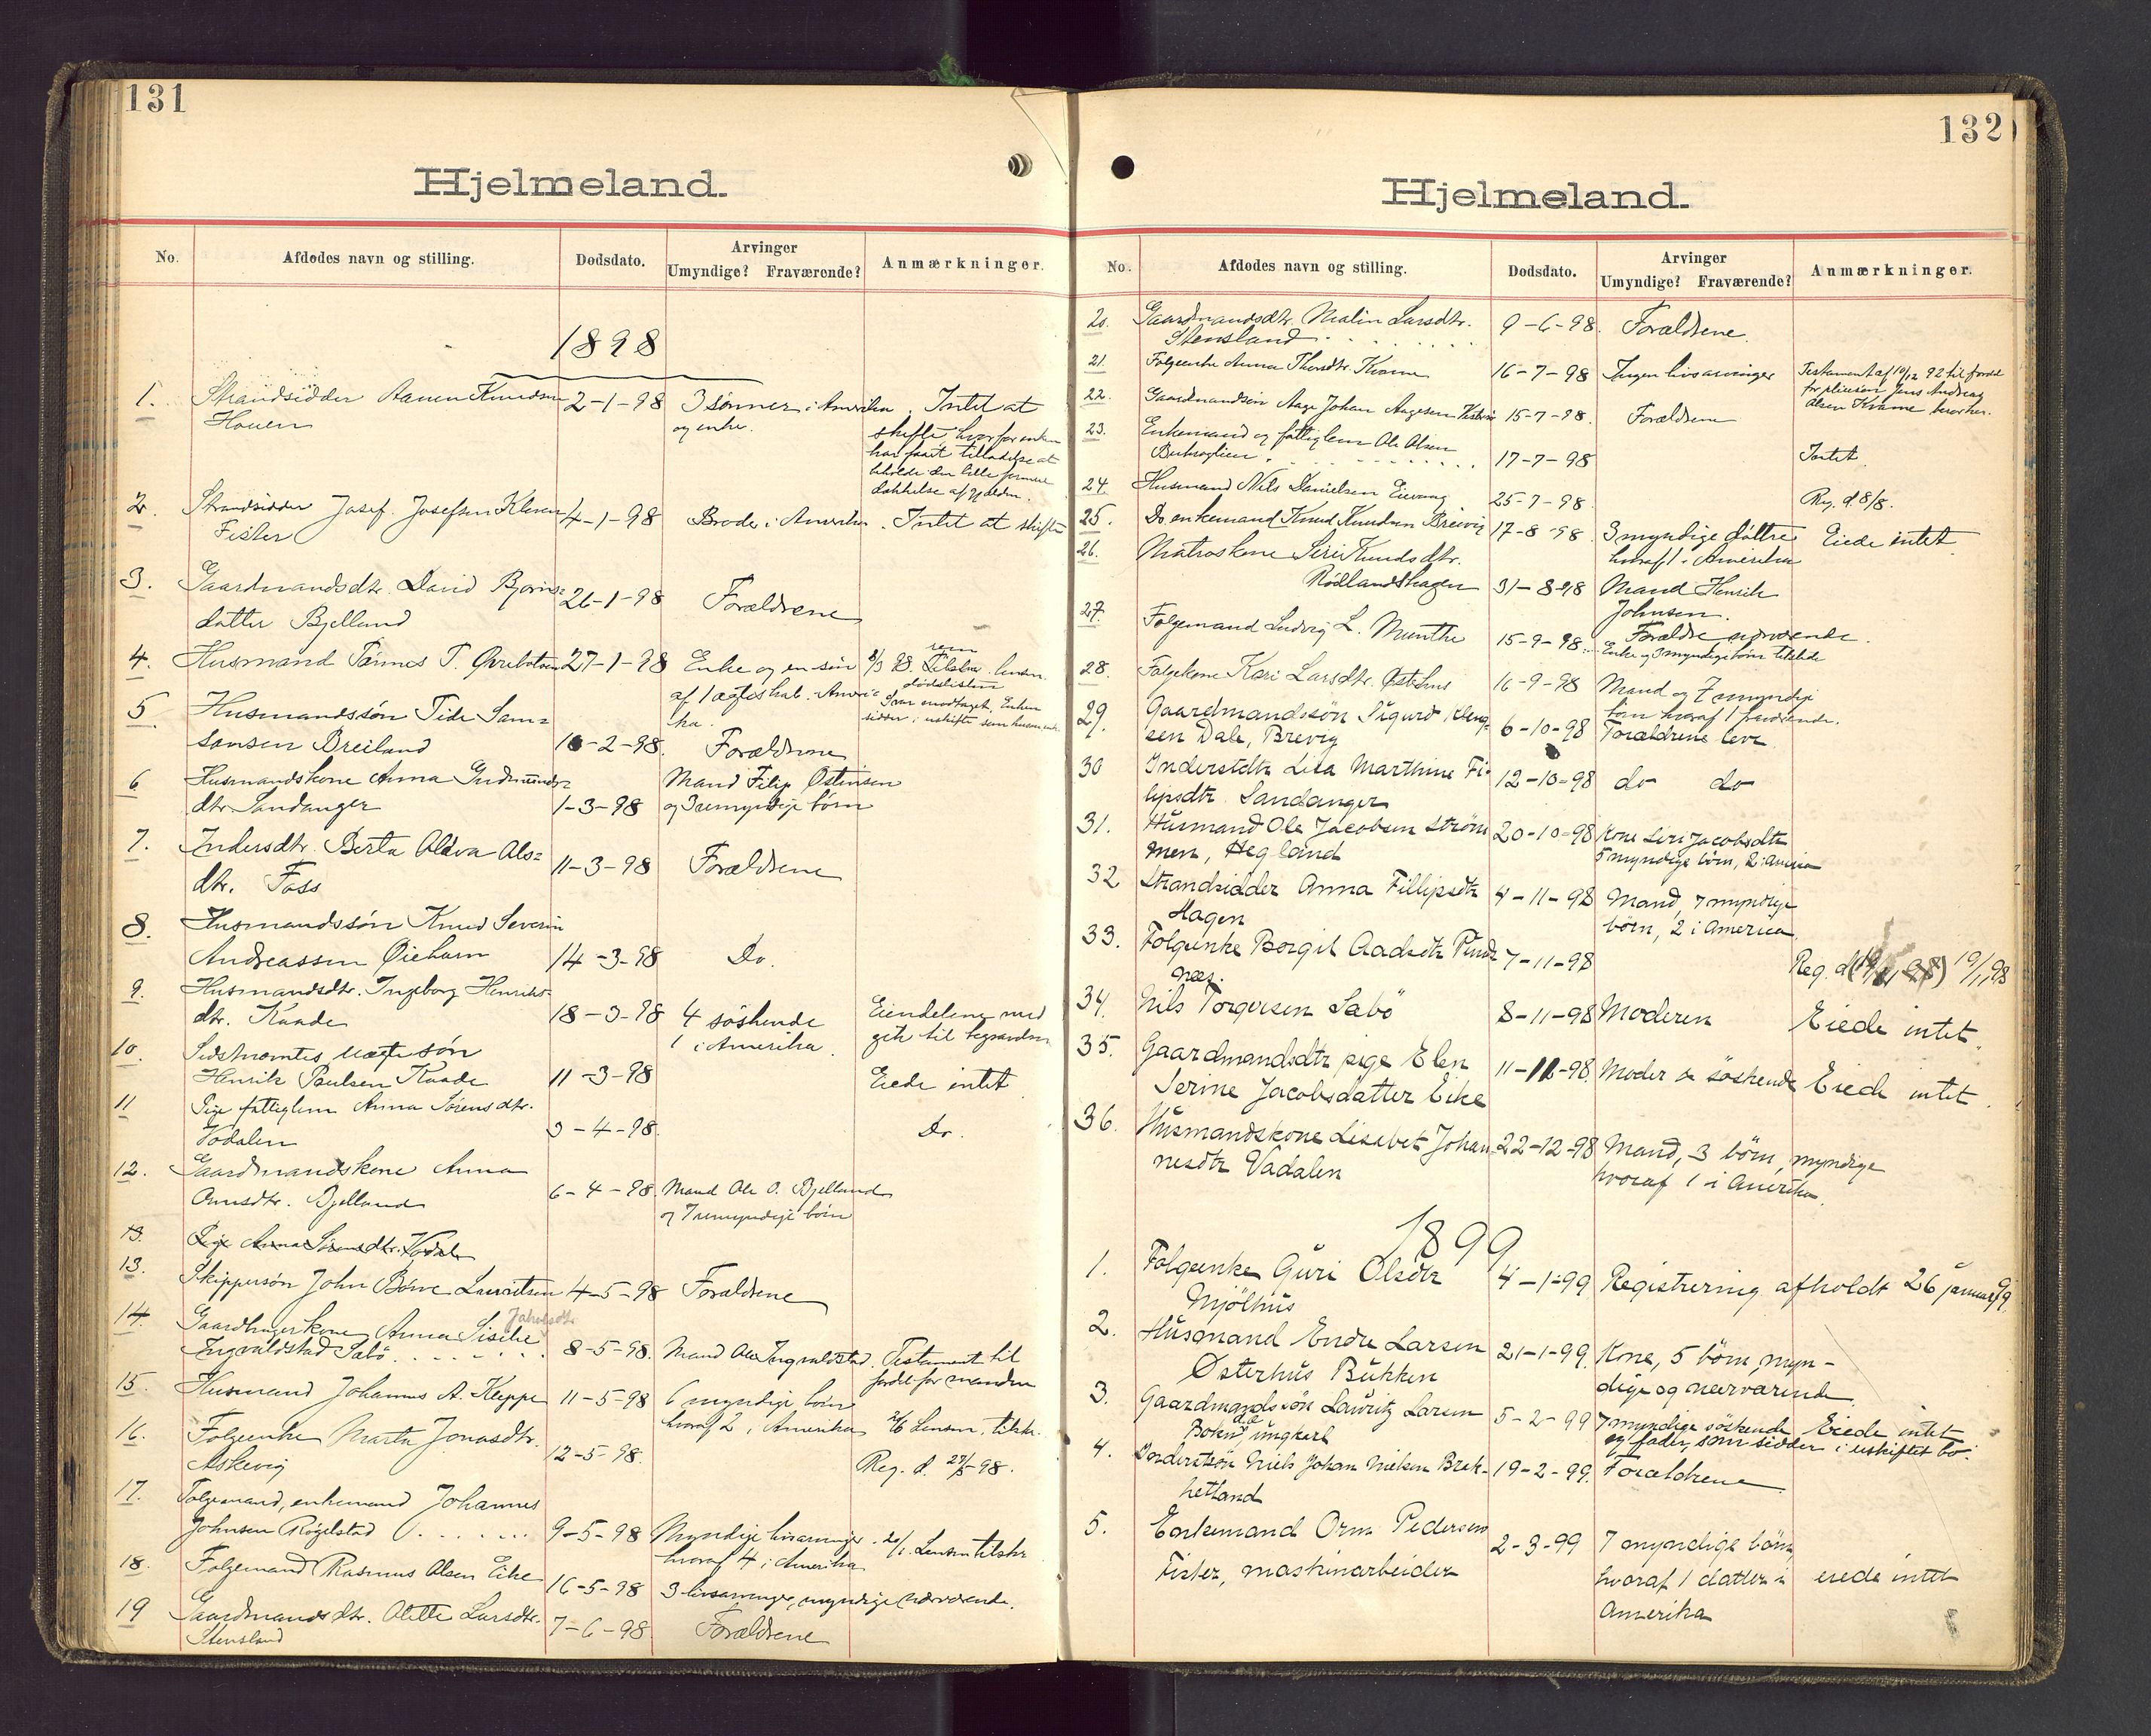 131
Hjelmeland.
No. Afdødes navn og stilling. Dødsdato. Arvinger Umyndige? Fraværende? Anmærkninger.
1898
1. Strandsidder Aanen Knudsen 2-1-98 3 sønner i Amerika. Intet at
Houen og enke. skifte hvorfor enken
har faaet tilladelse at
beholde den lille formue
dækkelse af gjælden.
2. Strandsidder Josef Josefsen Kleven 4-1-98 Broder i Amerika. Intet at skifte
Fister
3. Gaardmandsdtr. David Bjørns=
datter Bjelland 26-1-98 Forældrene
4. Husmand Tønnes T. 27-1-98 Enke og en søn
af 1 ægteskab i Ameri-
ka.
5. Husmandssøn Tide Sam=
sonsen Breiland 10-2-98. Forældrene
6 Husmandskone Anna Gudmunds= Mand Filip Østensen
dtr. Sandanger 1-3-98 og 3 umyndige børn
7. Indersdtr. Berta Oliva Ols=
dtr. Foss 11-3-98 Forældrene
8. Husmandssøn Knud Severin
Andreassen Øiehavn 14-3-98 Do.
9. Husmandsdtr. Ingeborg Henriks-
dtr. Kaade 18-3-98 4 søskende Eiendelene med
1 i Amerika. gik til begravelsen
10. Sidstnævntes uægte søn
Henrik Paulsen Kaade 11-3-98 Eiede intet
11 Pige fattiglem Anna Sørensdtr.
Vodalen 3-4-98. Do.
12. Gaardmandskone Anna
Bjelland 6-4-98. Mand Ole O. Bjelland
og 7 umyndige børn
13. Pige Anna Sørensdtr. Vodal
13. Skippersøn John Børve Lauritsen 4-5-98 Forældrene
14. Gaardbrugerkone Anna Siselie Jakobsdtr
Ingvaldstad Sabø 8-5-98. Mand Ole Ingvaldstad. Testament til
fordel for manden
15. Husmand Johannes A. Kleppe 11-5-98 6 myndige børn
hvoraf 2 i Amerika Lensm. tilskr.
16. Folgeenke Marta Jonasdtr.
Askevig 12-5-98. Reg. d. 27/5-98.
17. Folgemand, enkemand Johannes
Johnsen Røgelstad 9-5-98 Myndige livsarvinger Lensm tilskr
hvoraf 4 i Amerika
18. Folgemand Rasmus Olsen Eike 16-5-98 3 livsarvinger, myndige nærværende.
19 Gaardmandsdtr. Olette Larsdtr. 7-6-98 Forældrene
Stensland
132
Hjelmeland.
No. Afdødes navn og stilling. Dødsdato. Arvinger Umyndige? Fraværende? Anmærkninger.
20. Gaardmandsdtr. Malin Larsdtr. 9-6-98. Forældrene.
Stensland
21. Folgeenke Anna Thorsdtr. Kvame 16-7-98 Ingen livsarvinger Testament af 10/12 92 til fordel
for pleiesøn Jens Andreas
Olsen Kvame beror her.
22. Gaardmandssøn Aage Johan Aagesen 15-7-98. Forældrene
23. Enkemand og fattiglem Ole Olsen
17-7-98 Intet
24. Husmand Nils Danielsen 25-7-98. Reg. d. 8/8.
25. Do. enkemand Knud Knudsen Breivig 17-8-98. 3 myndige døttre Eiede intet
hvoraf 1 i Amerika
26. Matroskone Siri Knudsdtr.
Rødlandshagen 31-8-98 Mand Henrik
Johnsen.
27. Folgemand Ludvig L. Munthe 15-9-98. Forældre nærværende.
Enke og 3 myndige børn tilstede
28. Folgekone Kari Larsdtr. Østerhus 16-9-98 Mand og 7 umyndige
børn hvoraf 1 fraværende.
29. Gaardmandssøn Sigurd
sen Dale, Brevig 6-10-98 Forældrene lever
30 Inderstdtr Lisa Marthine Fi-
lipsdtr Sandanger 12-10-98 do do
31. Husmand Ole Jacobsen Strøm 20-10-98 Kone Siri Jacobsdtr
men, Hegland 5 myndige børn, 2 i America
32 Strandsidder Anna Fillipsdtr 4-11-98 Mand, 7 myndige
Hagen børn, 2 i America
33. Folgeenke Borgil Aadsdtr Tunds 7-11-98
næs. Reg. d 19/11 98
34. Nils Torgersen Sabö 8-11-98 Moderen Eiede intet.
35. Gaardmandsdtr pige Elen 11-11-98. Moder & søskende Eiede intet.
Serine Jacobsdatter Eike
36. Husmandskone Lisabet Johan 22-12-98 Mand, 3 børn, myndige
nesdtr Vadalen hvoraf 1 i Amerika.
1899
1. Folgeenke Guri Olsdtr 4-1-99 Registrering afholdt 26 januar 99.
Mjölhus
2. Husmand Endre Larsen 21-1-99. Kone, 5 børn, myn-
Østerhus Bukken dige og nærværende
3. Gaardmandssøn Lauritz Larsen 5-2-99 7 myndige søskende Eiede intet
ungkarl og fader, som sidder i uskiftet bo.
4. Inderstsøn Niels Johan Nielsen Bræk- 19-2-99. Forældrene
hetland
5. Enkemand Orm Pedersen 2-3-99 7 myndige børn,
Fister, maskinarbeider hvoraf 1 datter i eiede intet
Amerika